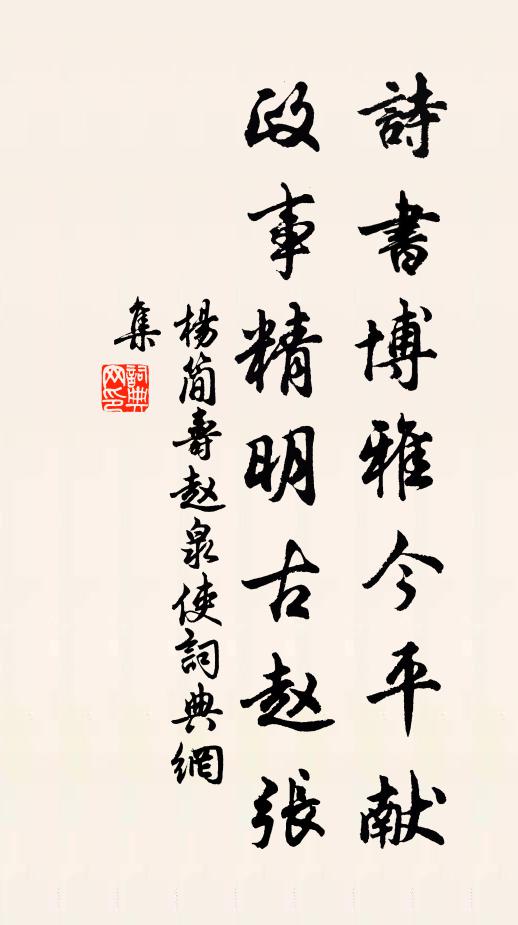 詩書博雅今平献
政事精明古赵張
楊简壽赵泉使詞典網
集
詞典
网印